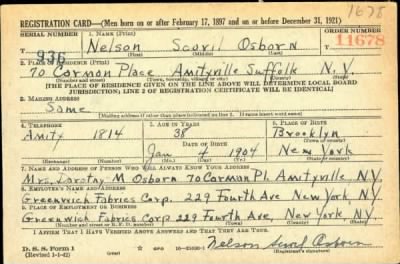 1678
REGISTRATION CARD—(Men born on or after February 17, 1897 and on or before December 31, 1921)
SERIAL NUMBER 1. NAME (Print) ORDER NUMBER
936 Nelson Scovil Osborn 11678
(First) (Middle) (Last)
2. PLACE OF RESIDENCE (Print)
70 Carman Place Amityville Suffolk N.Y.
(Number and street) (Town, township, village, or city) (County) (State)
[THE PLACE OF RESIDENCE GIVEN ON THE LINE ABOVE WILL DETERMINE LOCAL BOARD
JURISDICTION; LINE 2 OF REGISTRATION CERTIFICATE WILL BE IDENTICAL]
3. MAILING ADDRESS
Same
[Mailing address if other than place indicated on line 2. If same insert word same]
4. TELEPHONE 5. AGE IN YEARS 6. PLACE OF BIRTH
Amity 1814 38 Brooklyn
DATE OF BIRTH (Town or county)
Jan 4 1904 New York
(Exchange) (Number) (Mo.) (Day) (Yr.) (State or country)
7. NAME AND ADDRESS OF PERSON WHO WILL ALWAYS KNOW YOUR ADDRESS
Mrs. Dorothy M. Osborn 70 Carman Pl. Amityville NY
8. EMPLOYER'S NAME AND ADDRESS
Greenwich Fabrics Corp. 229 Fourth Ave New York, NY.
9. PLACE OF EMPLOYMENT OR BUSINESS
Greenwich Fabrics Corp. 229 Fourth Ave, New York, NY.
(Number and street or R. F. D. number) (Town) (County) (State)
I AFFIRM THAT I HAVE VERIFIED ABOVE ANSWERS AND THAT THEY ARE TRUE.
D. S. S. Form 1
(Revised 1-1-42) Nelson Scovil Osborn
(Registrant's signature)